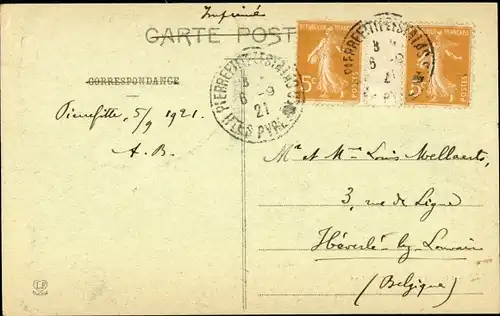 Imprimé
CARTE POST
CORRESPONDANCE
Pierrefitte, 5/9 1921.
A. B.
PIERREFITTE-NESTALAS
6 -9
21
HTES PYRENEES
REPUBLIQUE FRANÇAISE
5c
POSTES
PIERREFITTE-NESTALAS
6 -9
21
5c
POSTES
Mr et Mme Louis Mellaerts,
3, rue de Ligne
Héverlé-lez-Louvain
(Belgique)
LB